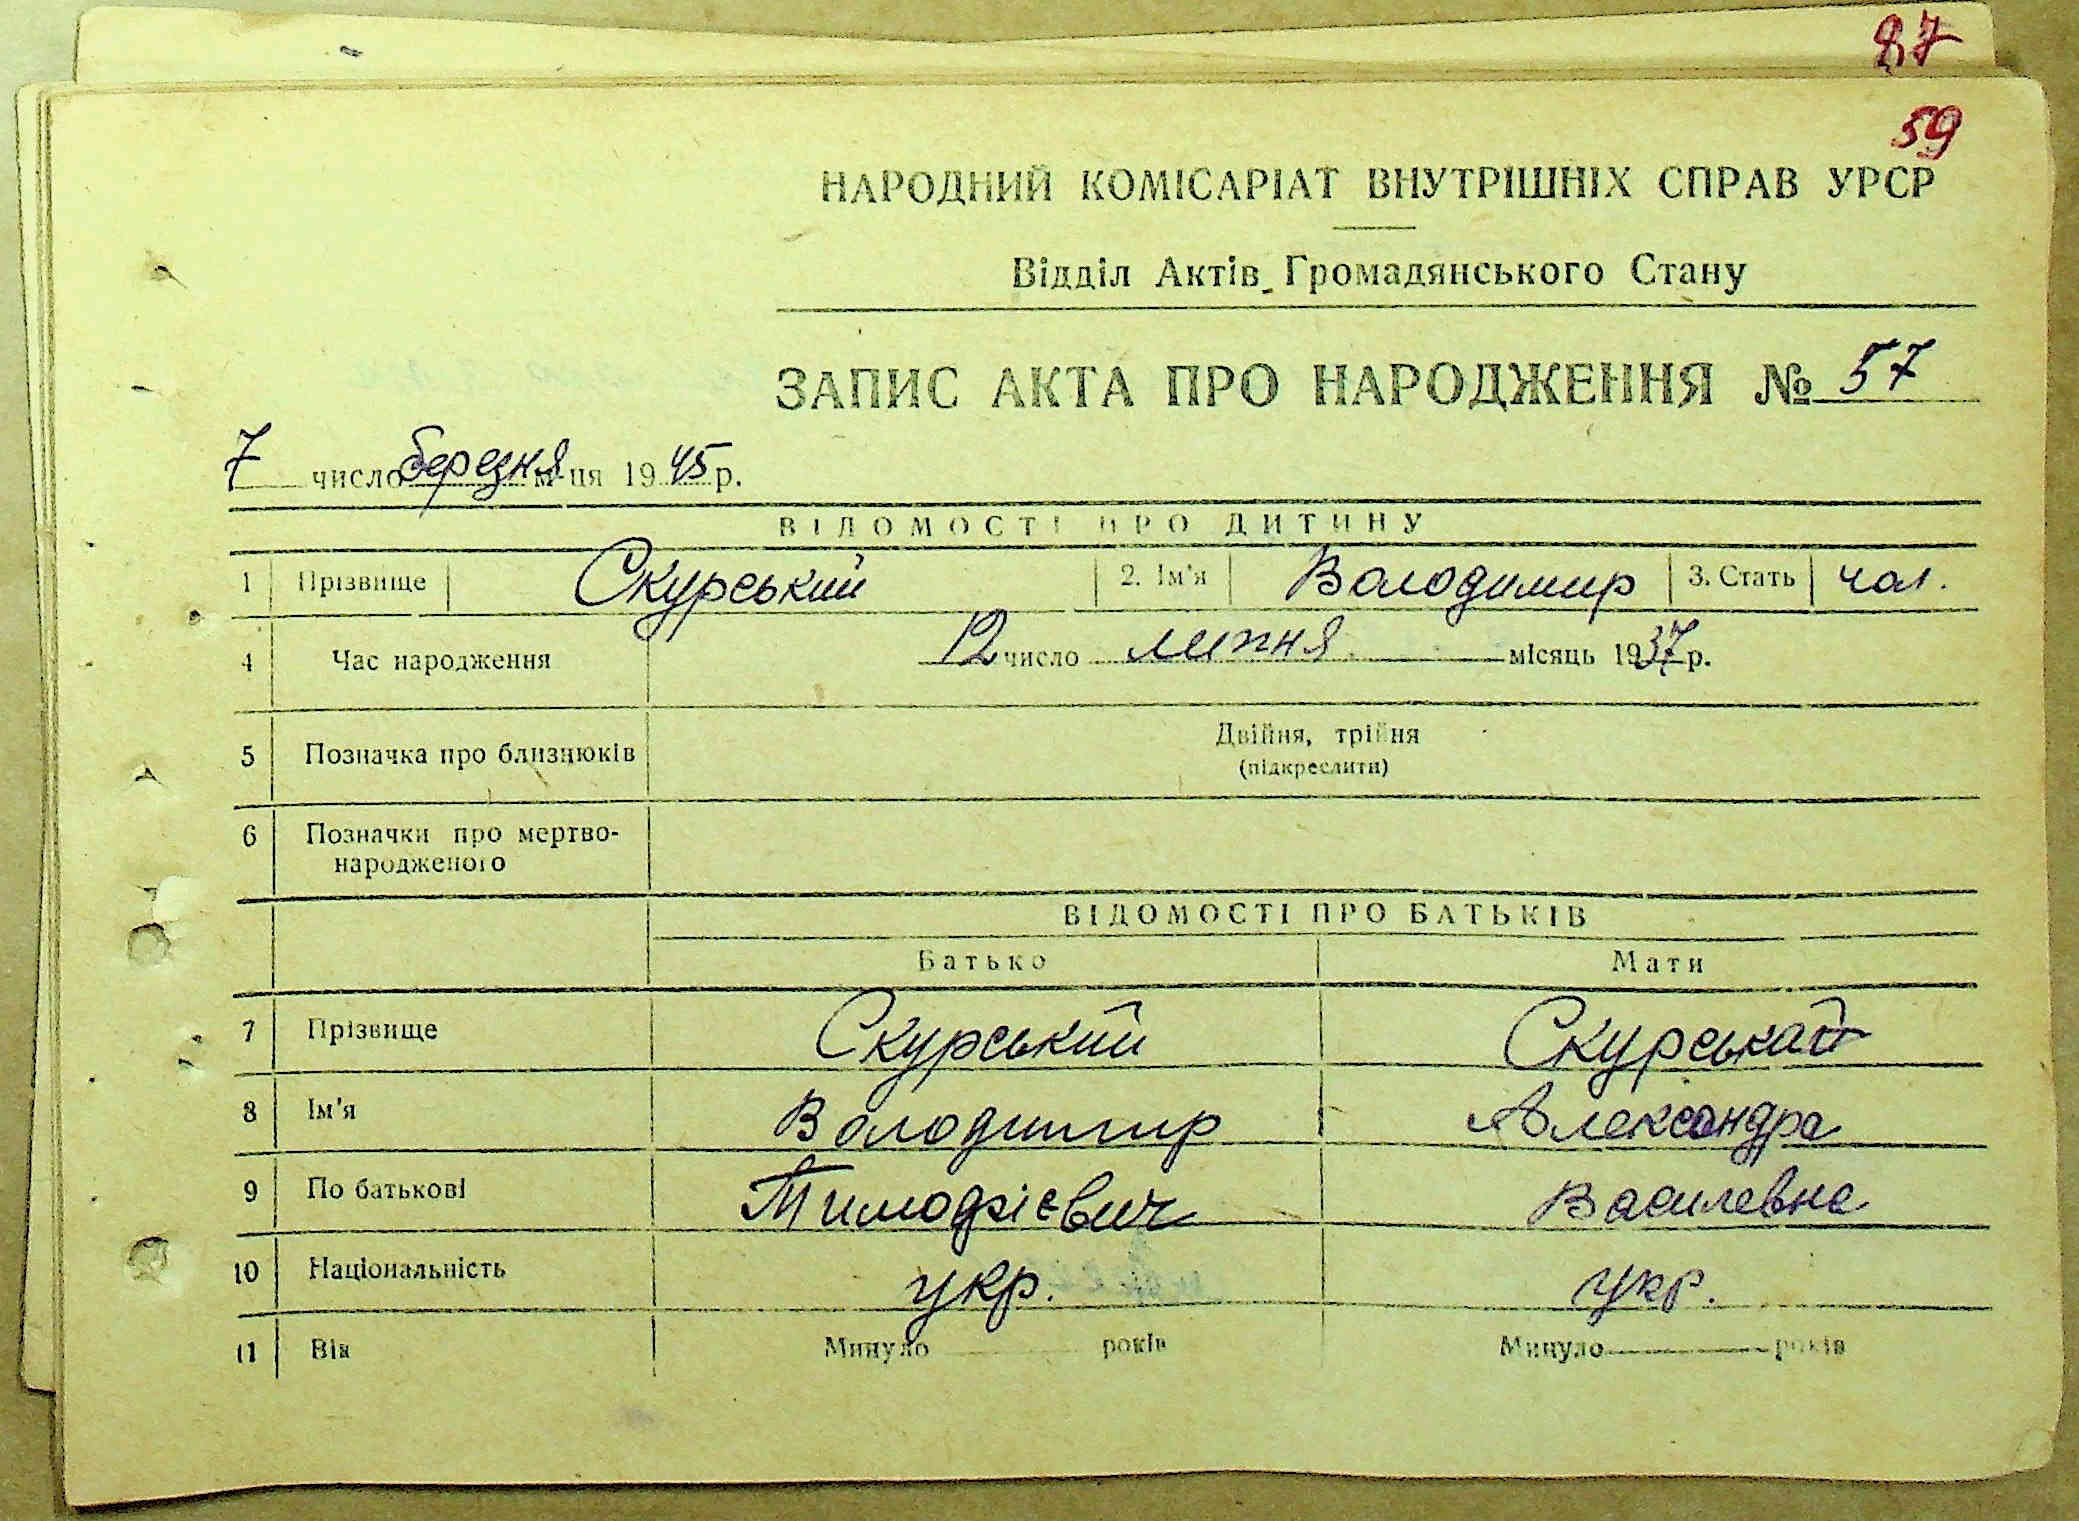 87
59
НАРОДНИЙ КОМІСАРІАТ ВНУТРІШНІХ СПРАВ УРСР
Відділ Актів Громадянського Стану
ЗАПИС АКТА ПРО НАРОДЖЕННЯ № 57
7 число березня м-ця 1945 р.
ВІДОМОСТІ ПРО ДИТИНУ
1 Прізвище Скурський 2. Ім'я Володимир 3. Стать чол.
4 Час народження 12 число липня місяць 1937 р.
5 Позначка про близнюків Двійня, трійня
(підкреслити)
6 Позначки про мертво-
народженого
ВІДОМОСТІ ПРО БАТЬКІВ
Батько Мати
7 Прізвище Скурський Скурськай
8 Ім'я Володимир Александра
9 По батькові Тимофієвич Василевна
10 Національність укр. укр.
11 Вік Минуло років Минуло років